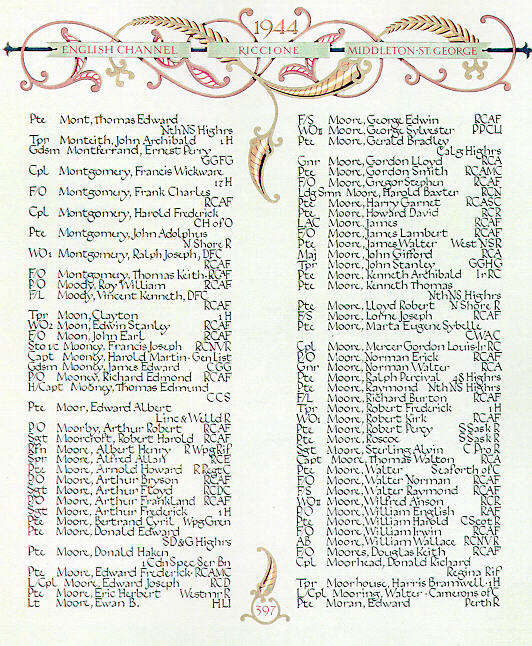 1944
ENGLISH CHANNEL
RICCIONE
MIDDLETON·ST.GEORGE
Pte Mont, Thomas Edward
NthNS Highrs
Tpr Monteith, John Archibald 1 H
Gdsm Montferrand, Ernest Perry
GGFG
Cpl Montgomery, Francis Wickware
17 H
F/O Montgomery, Frank Charles
RCAF
Cpl Montgomery, Harold Frederick
CH of O
Pte Montgomery, John Adolphus
N Shore R
WO1 Montgomery, Ralph Joseph, DFC
RCAF
F/O Montgomery, Thomas Keith·RCAF
P/O Moody, Roy William RCAF
F/L Moody, Vincent Kenneth, DFC
RCAF
Tpr Moon, Clayton 1 H
WO2 Moon, Edwin Stanley RCAF
F/O Moon, John Earl RCAF
Sto 1c Mooney, Francis Joseph RCNVR
Capt Mooney, Harold Martin·Gen List
Gdsm Mooney, James Edward CGG
P/O Mooney, Richard Edmond RCAF
H/Capt Mooney, Thomas Edmund
CCS
Pte Moor, Edward Albert
Linc & Welld R
P/O Moorby, Arthur Robert RCAF
Sgt Moorcroft, Robert Harold RCAF
Rfn Moore, Albert Henry R Wpg Rif
Spr Moore, Alfred Allan RCE
Pte Moore, Arnold Howard R Regt C
F/O Moore, Arthur Bryson RCAF
Sgt Moore, Arthur Floyd RCDC
P/O Moore, Arthur Frankland RCAF
Sgt Moore, Arthur Frederick 1 H
Pte Moore, Bertrand Cyril Wpg Gren
Pte Moore, Donald Edward
SD&G Highrs
Pte Moore, Donald Haken
1 Cdn Spec Ser Bn
Pte Moore, Edward Frederick·RCAMC
L/Cpl Moore, Edward Joseph RCD
Pte Moore, Eric Herbert Westmr R
Lt Moore, Ewan B. HLI
F/S Moore, George Edwin RCAF
WOII Moore, George Sylvester PPCLI
Pte Moore, Gerald Bradley
Calg Highrs
Gnr Moore, Gordon Lloyd RCA
Pte Moore, Gordon Smith RCAMC
F/O Moore, Gregor Stephen RCAF
Ldg Smn Moore, Harold Baxter RCN
Pte Moore, Harry Garnet RCASC
Pte Moore, Howard David RCR
LAC Moore, James RCAF
F/O Moore, James Lambert RCAF
Pte Moore, James Walter West NSR
Maj Moore, John Gifford RCA
Tpr Moore, John Stanley GGHG
Pte Moore, Kenneth Archibald Ir RC
Pte Moore, Kenneth Thomas
NthNS Highrs
Pte Moore, Lloyd Robert N Shore R
F/S Moore, Lorne Joseph RCAF
Pte Moore, Marta Eugene Sybelle
CWAC
Cpl Moore, Mercer Gordon Louis·Ir RC
P/O Moore, Norman Erick RCAF
Gnr Moore, Norman Walter RCA
Pte Moore, Ralph Percival 48 Highrs
Pte Moore, Raymond NthNS Highrs
F/L Moore, Richard Burton RCAF
Tpr Moore, Robert Frederick 1 H
WO1 Moore, Robert Kirk RCAF
Pte Moore, Robert Percy S Sask R
Pte Moore, Roscoe S Sask R
Sgt Moore, Sterling Alvin C Pro R
Capt Moore, Thomas Walton RCA
Pte Moore, Walter Seaforth of C
F/O Moore, Walter Norman RCAF
F/S Moore, Walter Raymond RCAF
WOII Moore, Wilfred Anson RCR
P/O Moore, William English RAF
Pte Moore, William Harold C Scot R
F/O Moore, William Irwin RCAF
AB Moore, William Wallace RCNVR
F/O Moores, Douglas Keith RCAF
Cpl Moorhead, Donald Richard
Regina Rif
Tpr Moorhouse, Harris Bramwell·1 H
L/Cpl Mooring, Walter·Camerons of C
Pte Moran, Edward Perth R
397